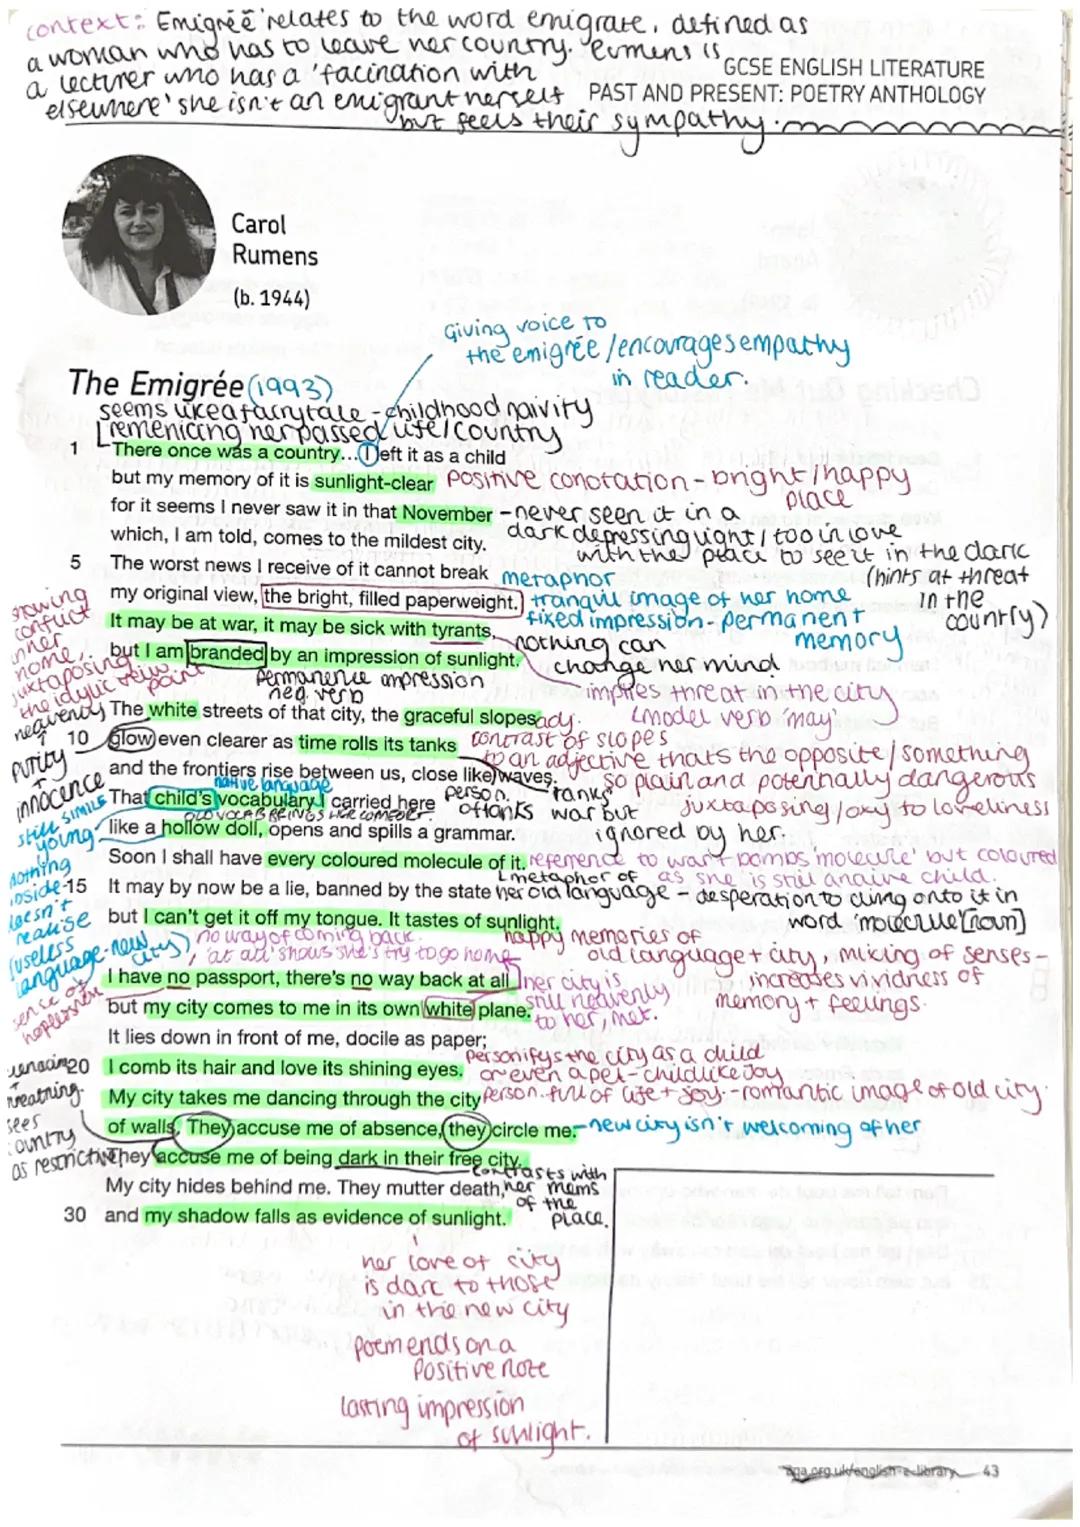 context: Emigréé relates to the word emigrate, defined as
a woman who has to leave her country. Rumens is
a lecturer who has a 'facination with
elsewhere' she isn't an emigrant herself
but feels their sympathy.
GCSE ENGLISH LITERATURE
PAST AND PRESENT: POETRY ANTHOLOGY
Carol
Rumens
(b. 1944)
Giving voice to
the emigrée/encourages empathy
in reader.
The Emigrée (1993)
seems like a fairytale - childhood naivity
remenicing her passed life/country
1 There once was a country... I left it as a child
but my memory of it is sunlight-clear
positive conotation - bright/happy
place
for it seems I never saw it in that November
-never seen it in a
dark depressing light/too in love
with the place to see it in the dark
which, I am told, comes to the mildest city.
(hints at threat
in the
country)
5 The worst news I receive of it cannot break
metaphor
my original view, the bright, filled paperweight.
tranquil image of her home
fixed impression - permanent
memory
It may be at war, it may be sick with tyrants,
nothing can
change her mind
but I am branded by an impression of sunlight.
permanence impression
neg verb
implies threat in the city
(model verb 'may'
showing
conflict
inner
home
juxtaposing
the idylic view
point
The white streets of that city, the graceful slopes
heavenly
purity
innocence
contrast of slopes
to an adjective thats the opposite/something
so plain and potentially dangerous
10 glow even clearer as time rolls its tanks
and the frontiers rise between us, close like waves.
person.
of tanks
'tanks'
war but
ignored by her.
juxtaposing/oxy to loveliness
native language
That child's vocabulary I carried here
like a hollow doll, opens and spills a grammar.
simile
still
young
nothing
inside
doesn't
realise
(useless
language-new
city)
Soon I shall have every coloured molecule of it.
reference to war + bombs 'molecule' but coloured
as she is still a naive child.
metaphor of
her old language - desperation to cling onto it in
word 'molecule' [noun]
15 It may by now be a lie, banned by the state
but I can't get it off my tongue. It tastes of sunlight.
happy memories of
old language + city, mixing of senses-
increases vividness of
memory + feelings.
no way of coming back.
'at all' shows she's try to go home
sense of
I have no passport, there's no way back at all
but my city comes to me in its own white plane.
her city is
still heavenly
to her, met.
It lies down in front of me, docile as paper;
20 I comb its hair and love its shining eyes.
personifys the city as a child
or even a pet - childlike joy
My city takes me dancing through the city
person. full of life + joy - romantic image of old city.
of walls. They accuse me of absence, they circle me.
-new city isn't welcoming of her
sees
country
as restrictive
They accuse me of being dark in their free city.
contrasts with
her mems
of the
place.
My city hides behind me. They mutter death,
30 and my shadow falls as evidence of sunlight.
her love of city
is dark to those
in the new city
poem ends on a
positive note
lasting impression
of sunlight.
aqa.org.uk/english-e-library 43